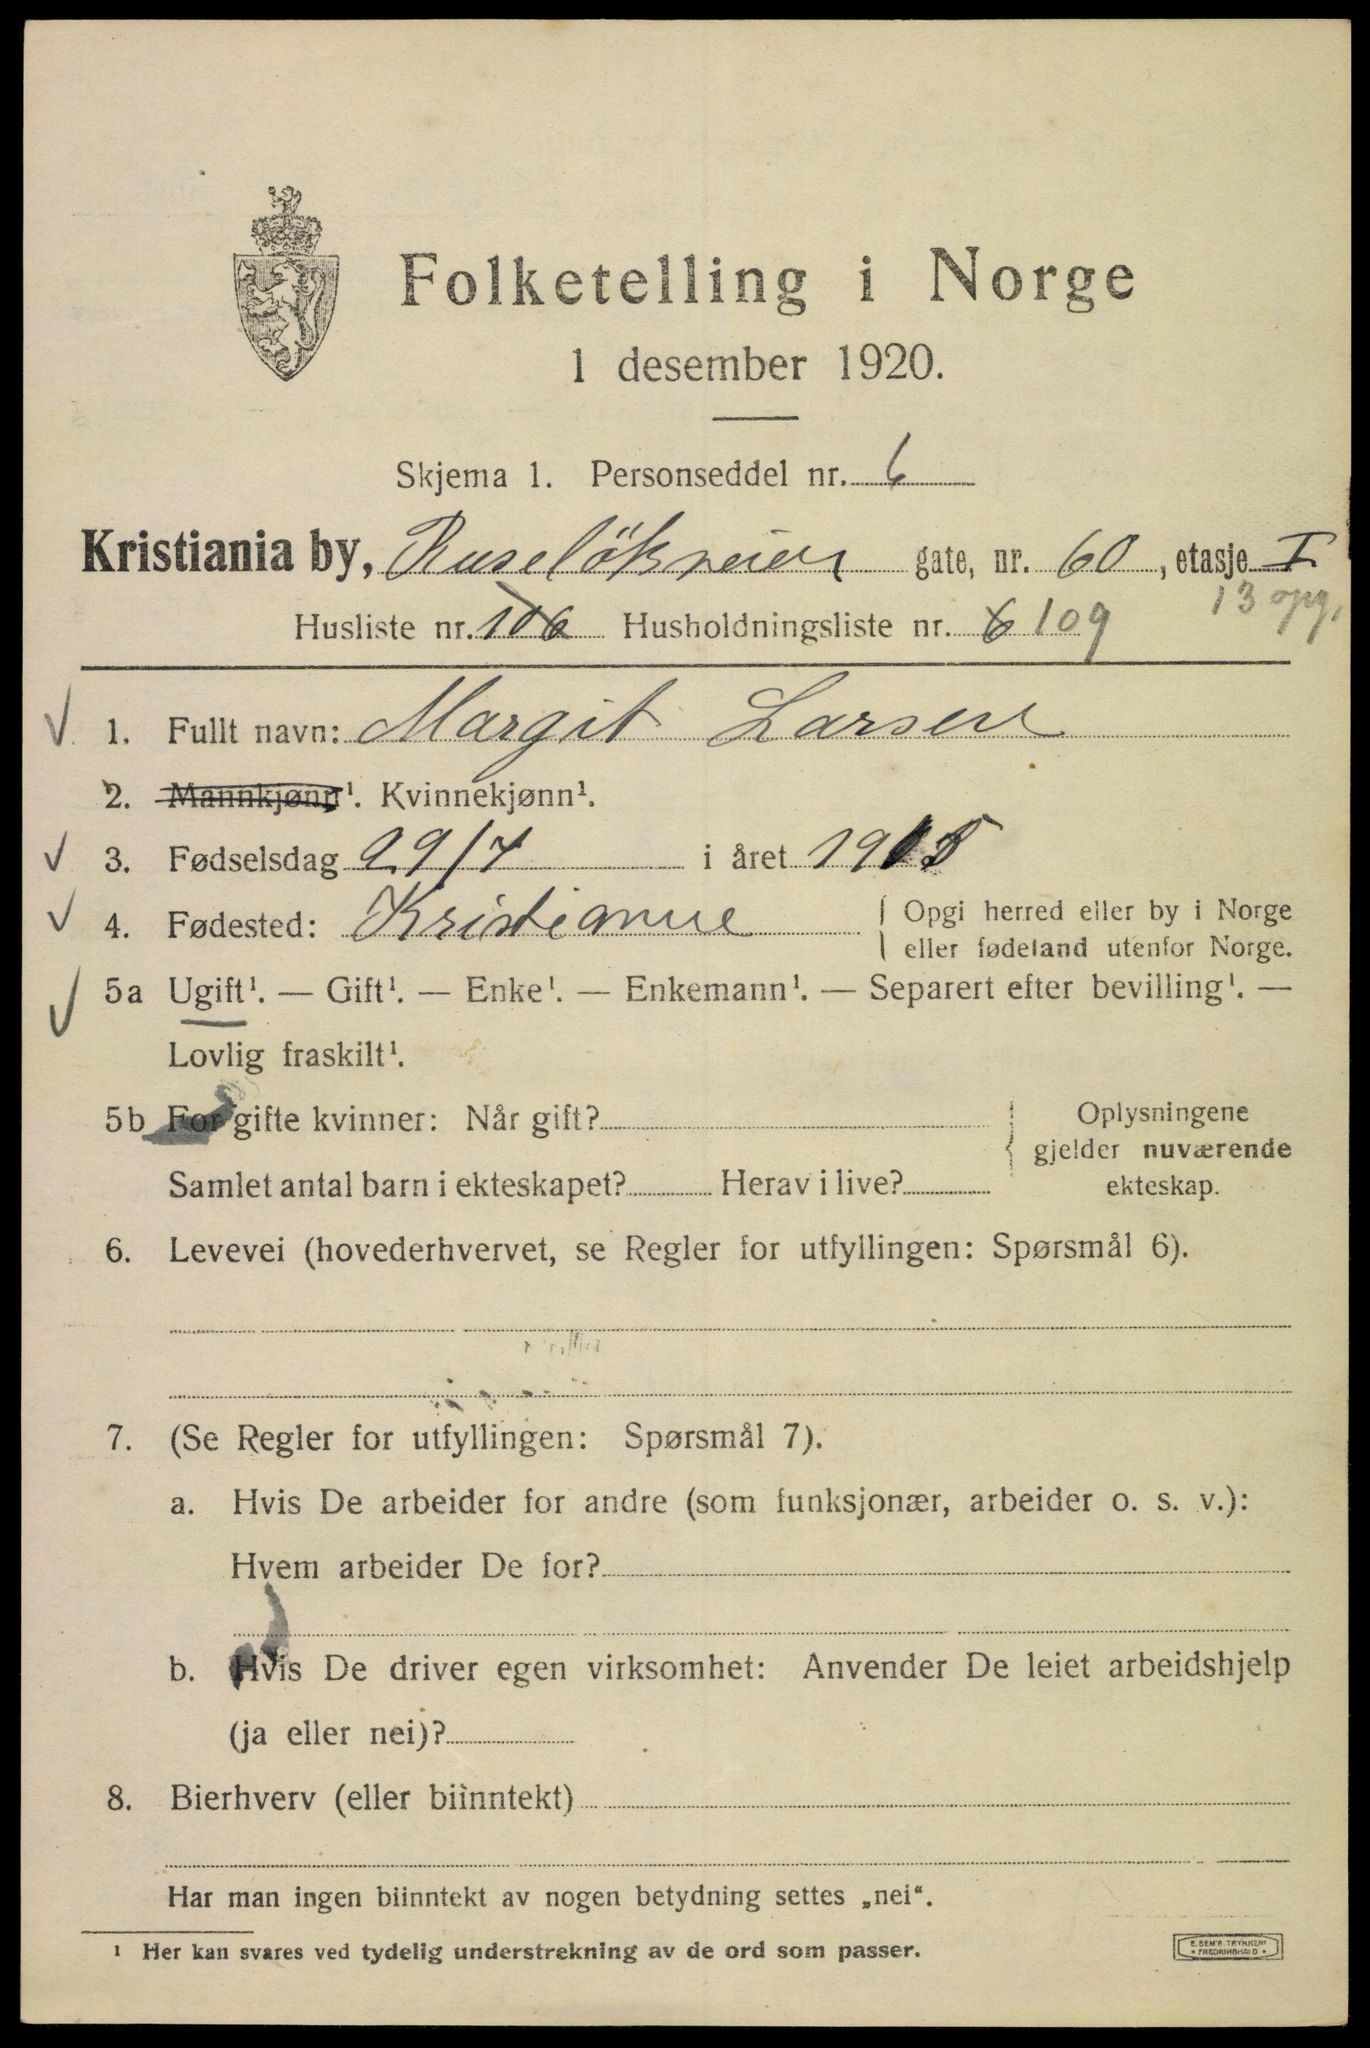 Folketelling i Norge
1 desember 1920.
Skjema 1. Personseddel nr. 6
Kristiania by, Ruseløkveien gate, nr. 60, etasje I
13 opg.
Husliste nr. 106 Husholdningsliste nr. 6 109
1. Fullt navn: Margit Larsen
2. Mannkjønn¹. Kvinnekjønn¹.
3. Fødselsdag 29/7 i året 1915
4. Fødested: Kristiania { Opgi herred eller by i Norge
eller fødeland utenfor Norge.
5a Ugift¹. — Gift¹. — Enke¹. — Enkemann¹. — Separert efter bevilling¹. —
Lovlig fraskilt¹.
5b For gifte kvinner: Når gift? { Oplysningene
gjelder nuværende
Samlet antal barn i ekteskapet? Herav i live? ekteskap.
6. Levevei (hovederhvervet, se Regler for utfyllingen: Spørsmål 6).
7. (Se Regler for utfyllingen: Spørsmål 7).
a. Hvis De arbeider for andre (som funksjonær, arbeider o. s. v.):
Hvem arbeider De for?
b. Hvis De driver egen virksomhet: Anvender De leiet arbeidshjelp
(ja eller nei)?
8. Bierhverv (eller biinntekt)
Har man ingen biinntekt av nogen betydning settes „nei“.
¹ Her kan svares ved tydelig understrekning av de ord som passer.
E. SEM'S TRYKKERI
FREDRIKSHALD